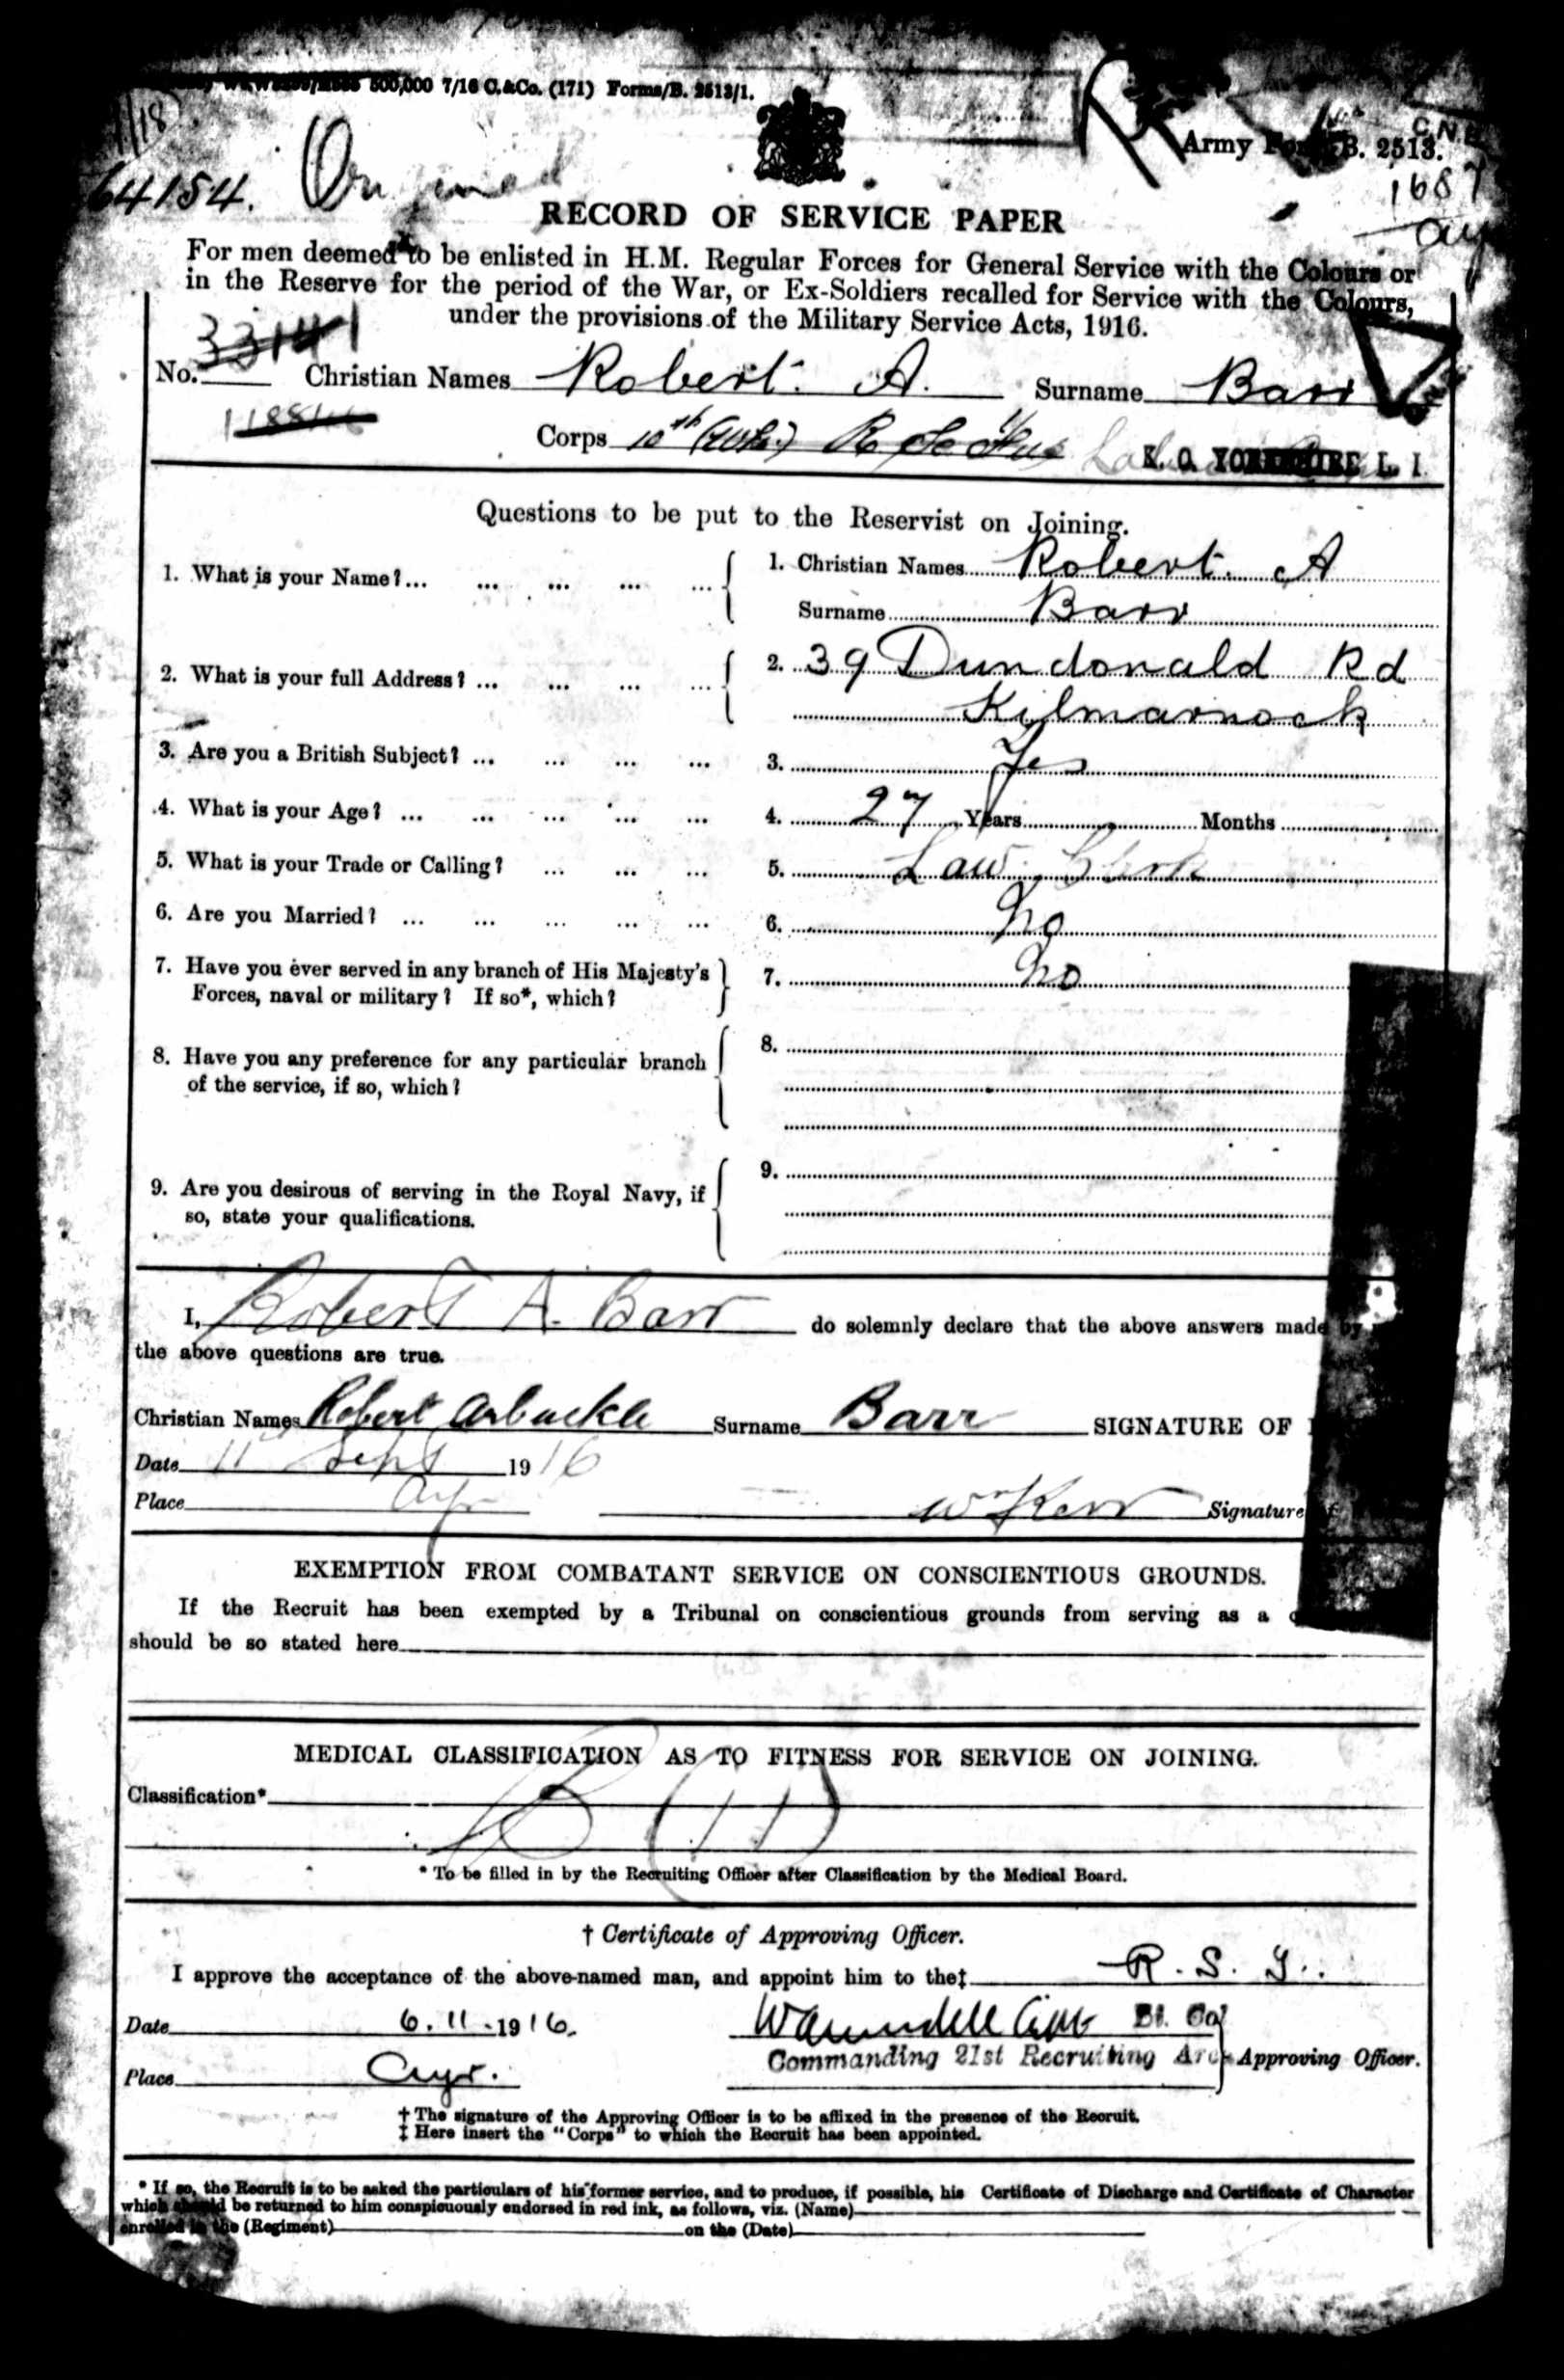 500,000 7/16 C.&Co. (171) Forms/B. 2513/1.
C.N.B
Army B. 2513.
1687
Ay
64154. Original
RECORD OF SERVICE PAPER
For men deemed to be enlisted in H.M. Regular Forces for General Service with the Colours or
in the Reserve for the period of the War, or Ex-Soldiers recalled for Service with the Colours,
under the provisions of the Military Service Acts, 1916.
33141
No. Christian Names Robert. A. Surname Barr
Corps 10th (Wks) R Sc Fus K. O. YORKSHIRE L. I.
Questions to be put to the Reservist on Joining.
1. What is your Name?... ... ... ... ... 1. Christian Names Robert. A
Surname Barr
2. What is your full Address? ... ... ... ... 2. 39 Dundonald Rd
Kilmarnock
3. Are you a British Subject? ... ... ... ... 3. Yes
4. What is your Age? ... ... ... ... ... 4. 27 Years Months
5. What is your Trade or Calling? ... ... ... 5. Law Clerk
6. Are you Married? ... ... ... ... ... 6. No
7. Have you ever served in any branch of His Majesty's 7. No
Forces, naval or military? If so*, which?
8. Have you any preference for any particular branch 8.
of the service, if so, which?
9. Are you desirous of serving in the Royal Navy, if 9.
so, state your qualifications.
I, Robert A. Barr do solemnly declare that the above answers made by
the above questions are true.
Christian Names Robert Arbuckle Surname Barr SIGNATURE OF
Date 11 Sept 1916
Place Ayr Wm Kerr Signature of
EXEMPTION FROM COMBATANT SERVICE ON CONSCIENTIOUS GROUNDS.
If the Recruit has been exempted by a Tribunal on conscientious grounds from serving as a
should be so stated here
MEDICAL CLASSIFICATION AS TO FITNESS FOR SERVICE ON JOINING.
Classification* B (1)
* To be filled in by the Recruiting Officer after Classification by the Medical Board.
† Certificate of Approving Officer.
I approve the acceptance of the above-named man, and appoint him to the‡ R. S. F.
Date 6.11.1916. Bt. Col
Commanding 21st Recruiting Area Approving Officer.
Place Ayr.
† The signature of the Approving Officer is to be affixed in the presence of the Recruit.
‡ Here insert the "Corps" to which the Recruit has been appointed.
* If so, the Recruit is to be asked the particulars of his former service, and to produce, if possible, his Certificate of Discharge and Certificate of Character
which should be returned to him conspicuously endorsed in red ink, as follows, viz. (Name)
enrolled in the (Regiment) on the (Date)